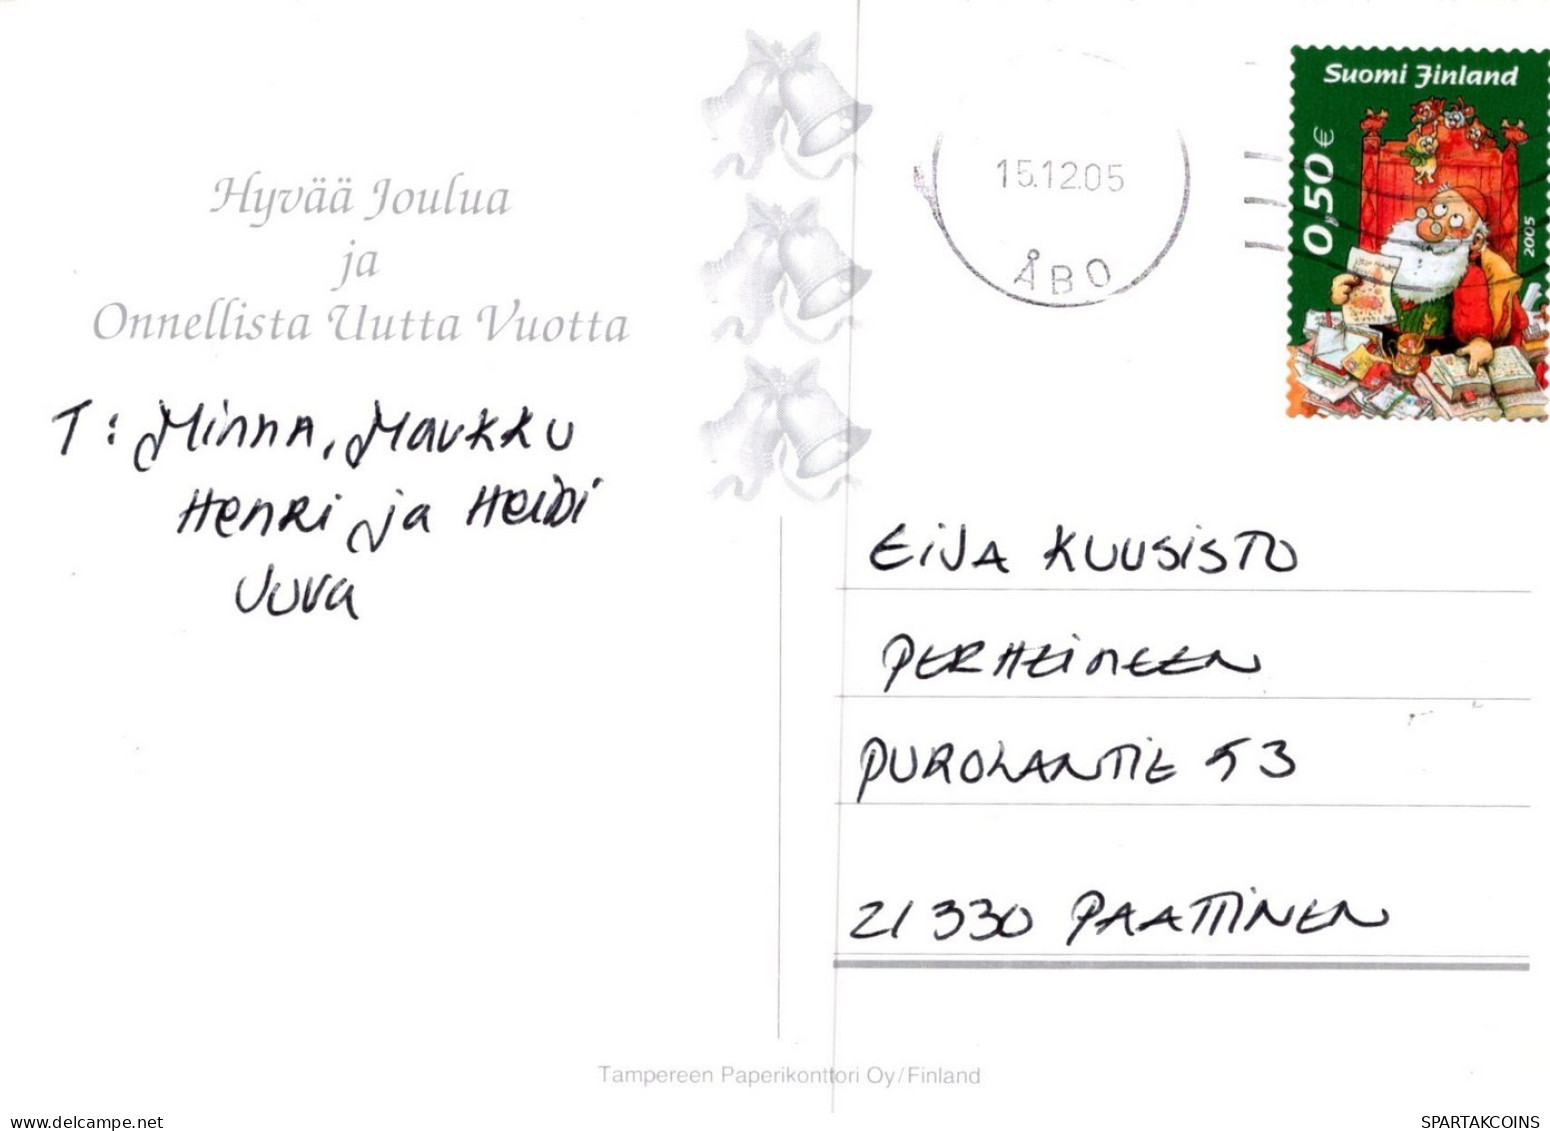 Hyvää Joulua
ja
Onnellista Uutta Vuotta
T: Minna, Markku
Henri ja Heidi
Juva
15.12.05
ÅBO
Suomi Finland
0,50 €
2005
EIJA KUUSISTO
PERHEINEEN
PUROLANTIE 53
21330 PAATTINEN
Tampereen Paperikonttori Oy/Finland
delcampe.net
SPARTAKCOINS